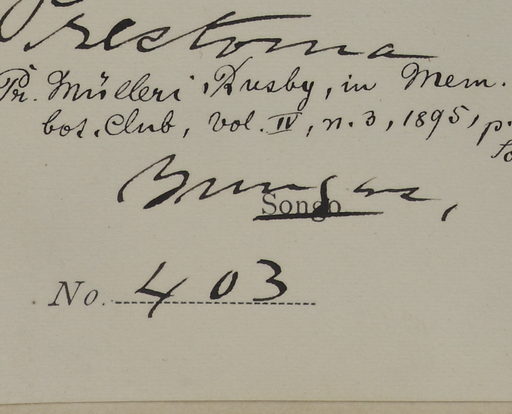 Prestonia
Pr. Mülleri Rusby, in Mem.
bot. Club, vol. IV, n. 3, 1895, p.
Yungas,
Songo
No. 403